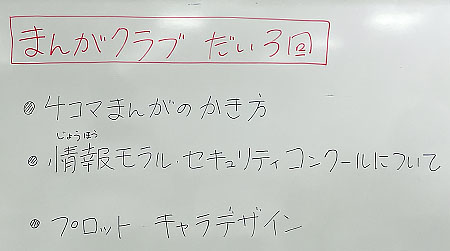 まんがクラブ だい3回
◎4コマまんがのかき方
じょうほう
◎情報モラル・セキュリティコンクールについて
◎プロット・キャラデザイン